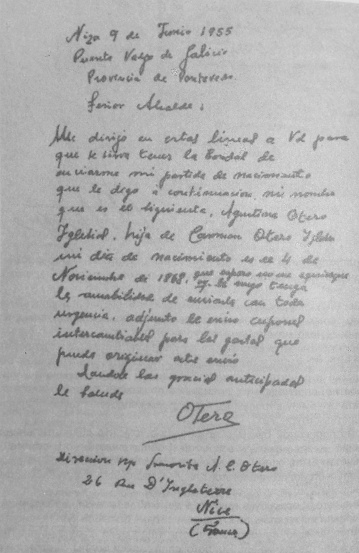 Niza 9 de Junio 1955
Puente Valga de Galicia
Provencia de Pontevedra
Señor Alcalde:
Me dirijo en estas lineas a Vd para
que se sirva tener la bondad de
enviarme mi partida de nacimiento
que le digo a continuacion mi nombre
que es el siguiente, Agustina Otero
Iglesias, hija de Carmen Otero Iglesias
mi dia de nacimiento es el 4 de
Noviembre de 1868, que espero no me equivoque
y le ruego tenga
la amabilidad de enviarla con toda
urgencia, adjunto le envio cupones
intercambiables para los gastos que
pueda originar este envio
Dandole las gracias anticipadas
le saluda
Otero
Direccion Señorita A. C. Otero
26 Rue D'Ingleterre
Nice
(France)